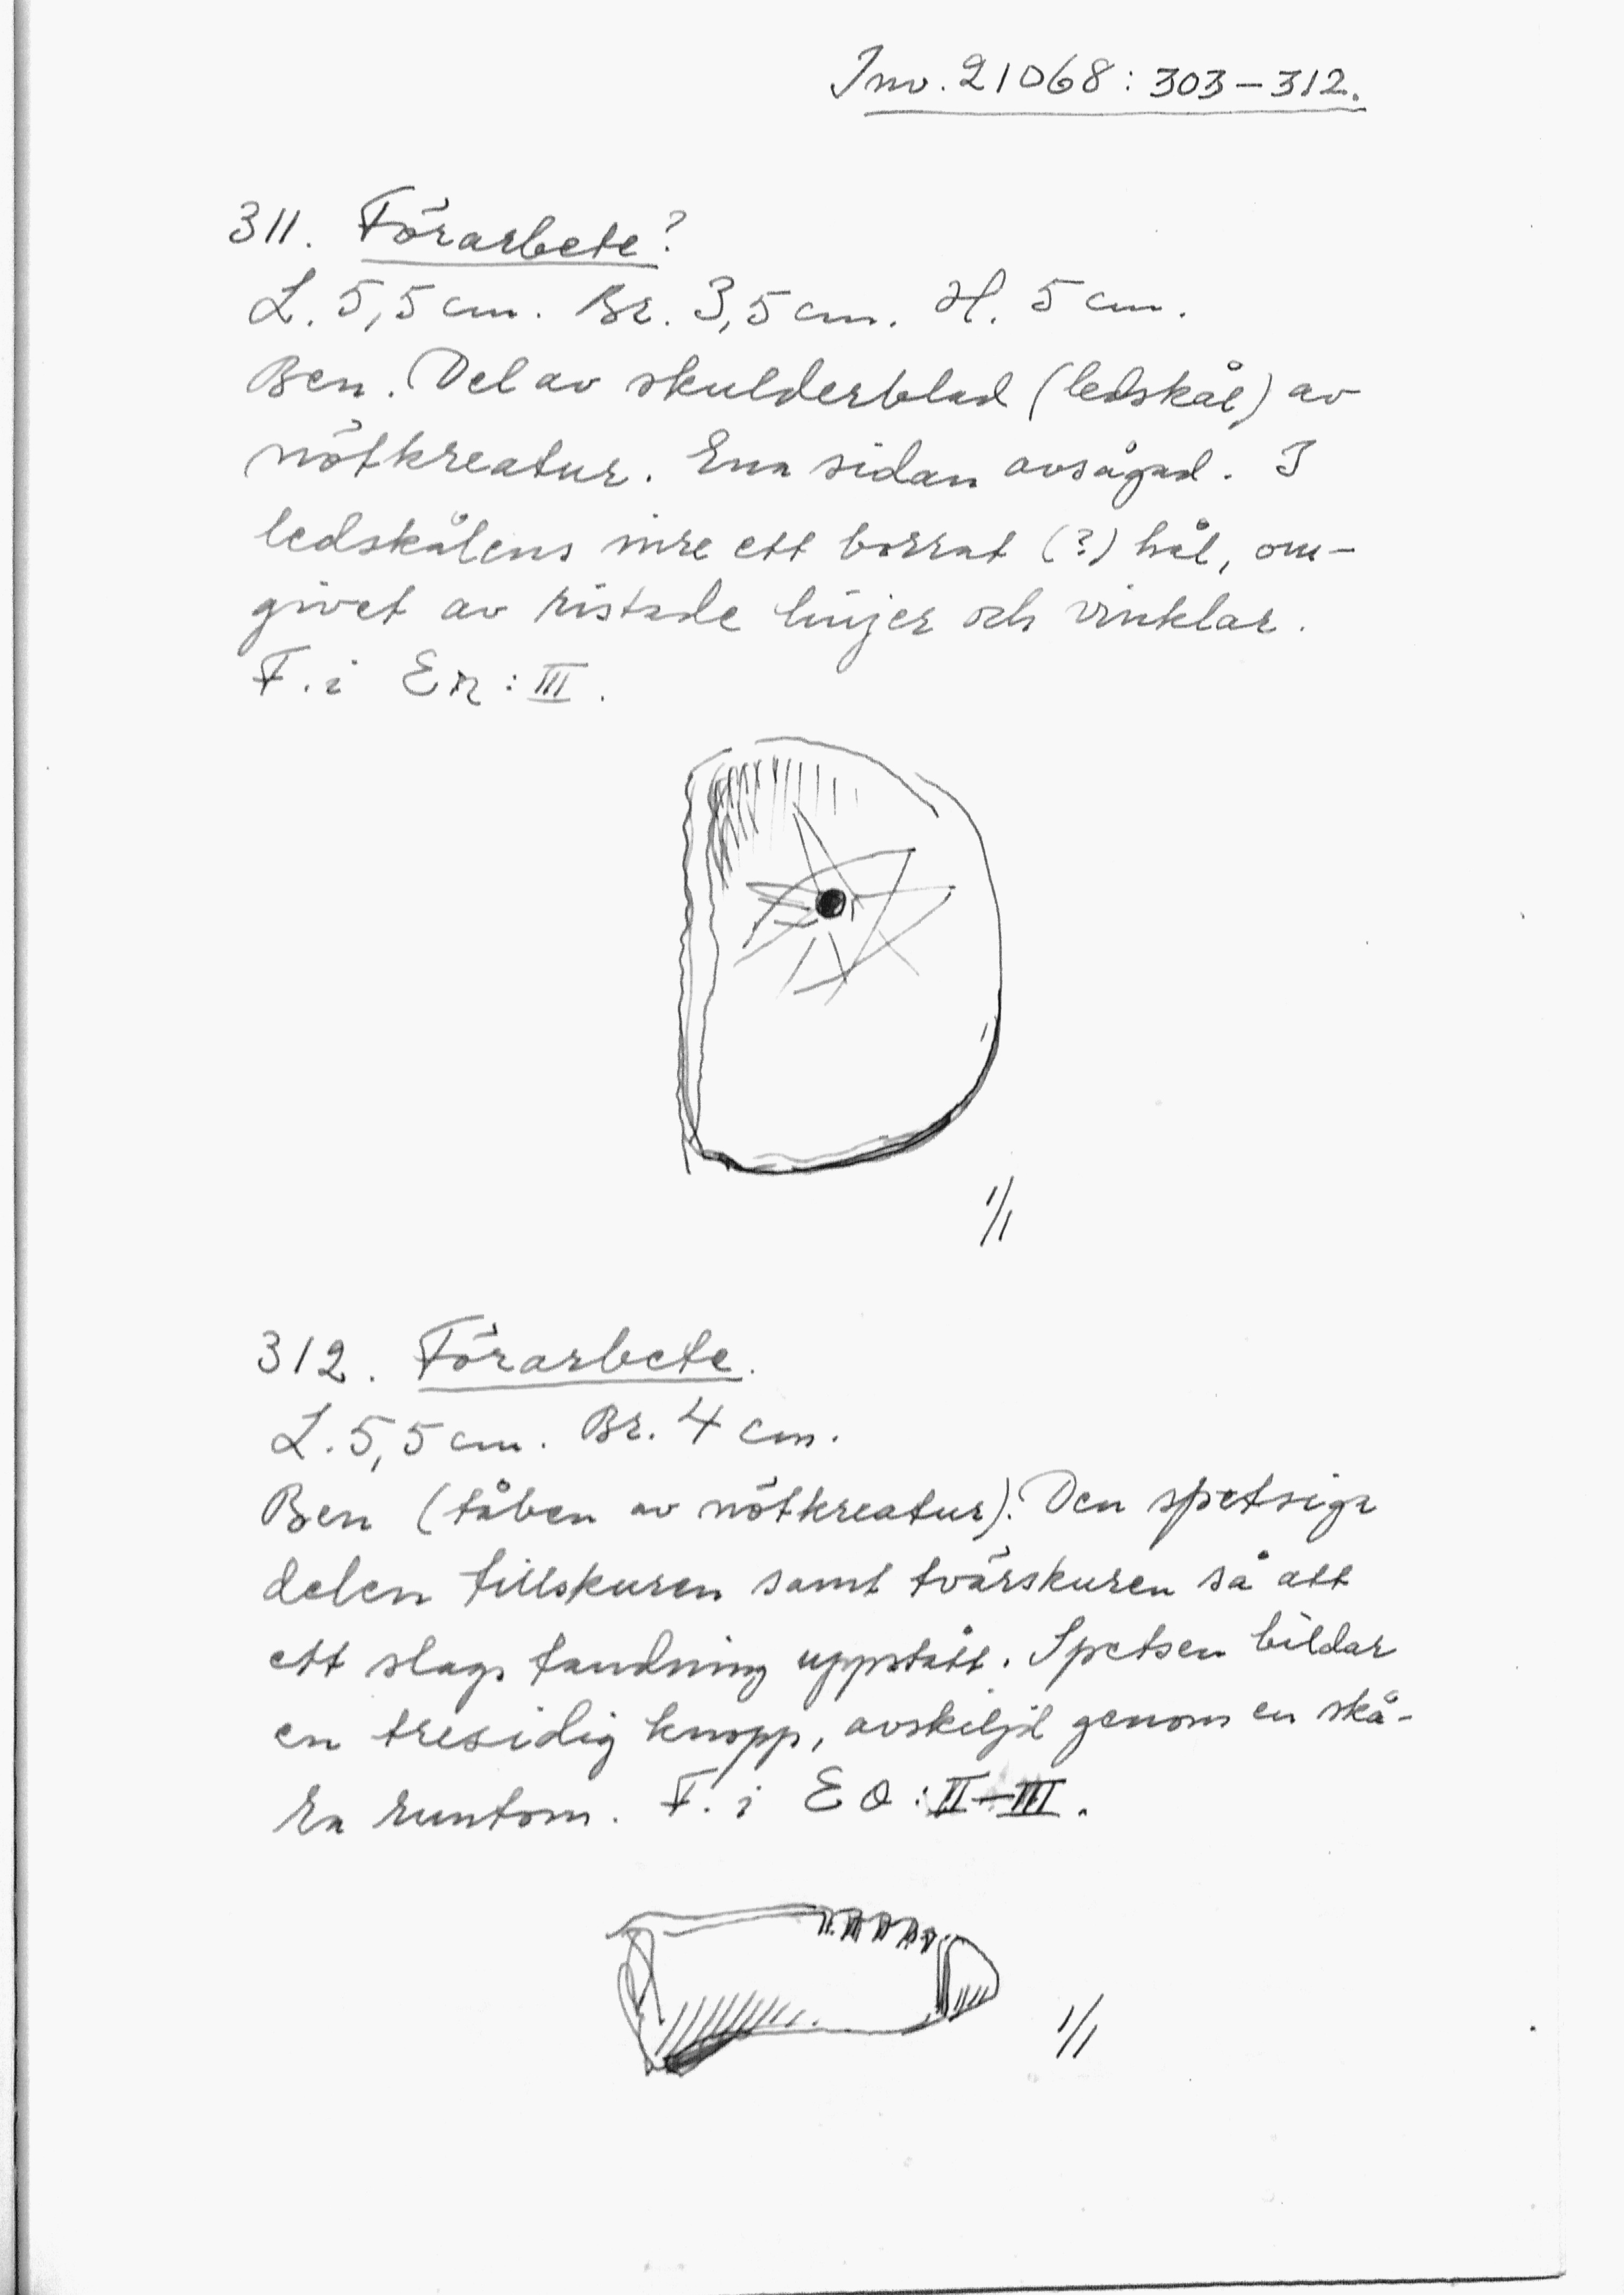 Inv. 21068: 303-312.
311. Förarbete?
L. 5,5 cm. Br. 3,5 cm. H. 5 cm.
Ben. Del av skulderblad (ledskål) av
nötkreatur. Ena sidan avsågad. I
ledskålens inre ett borrat (?) hål, om-
givet av ristade linjer och vinklar.
F. i En: III.
1/1
312. Förarbete.
L. 5,5 cm. Br. 4 cm.
Ben (tåben av nötkreatur). Den spetsiga
delen tillskuren samt tvärskuren så att
ett slags tandning uppstått. Spetsen bildar
en tresidig knopp, avskiljd genom en skå-
ra runtom. F. i EO: II-III.
1/1